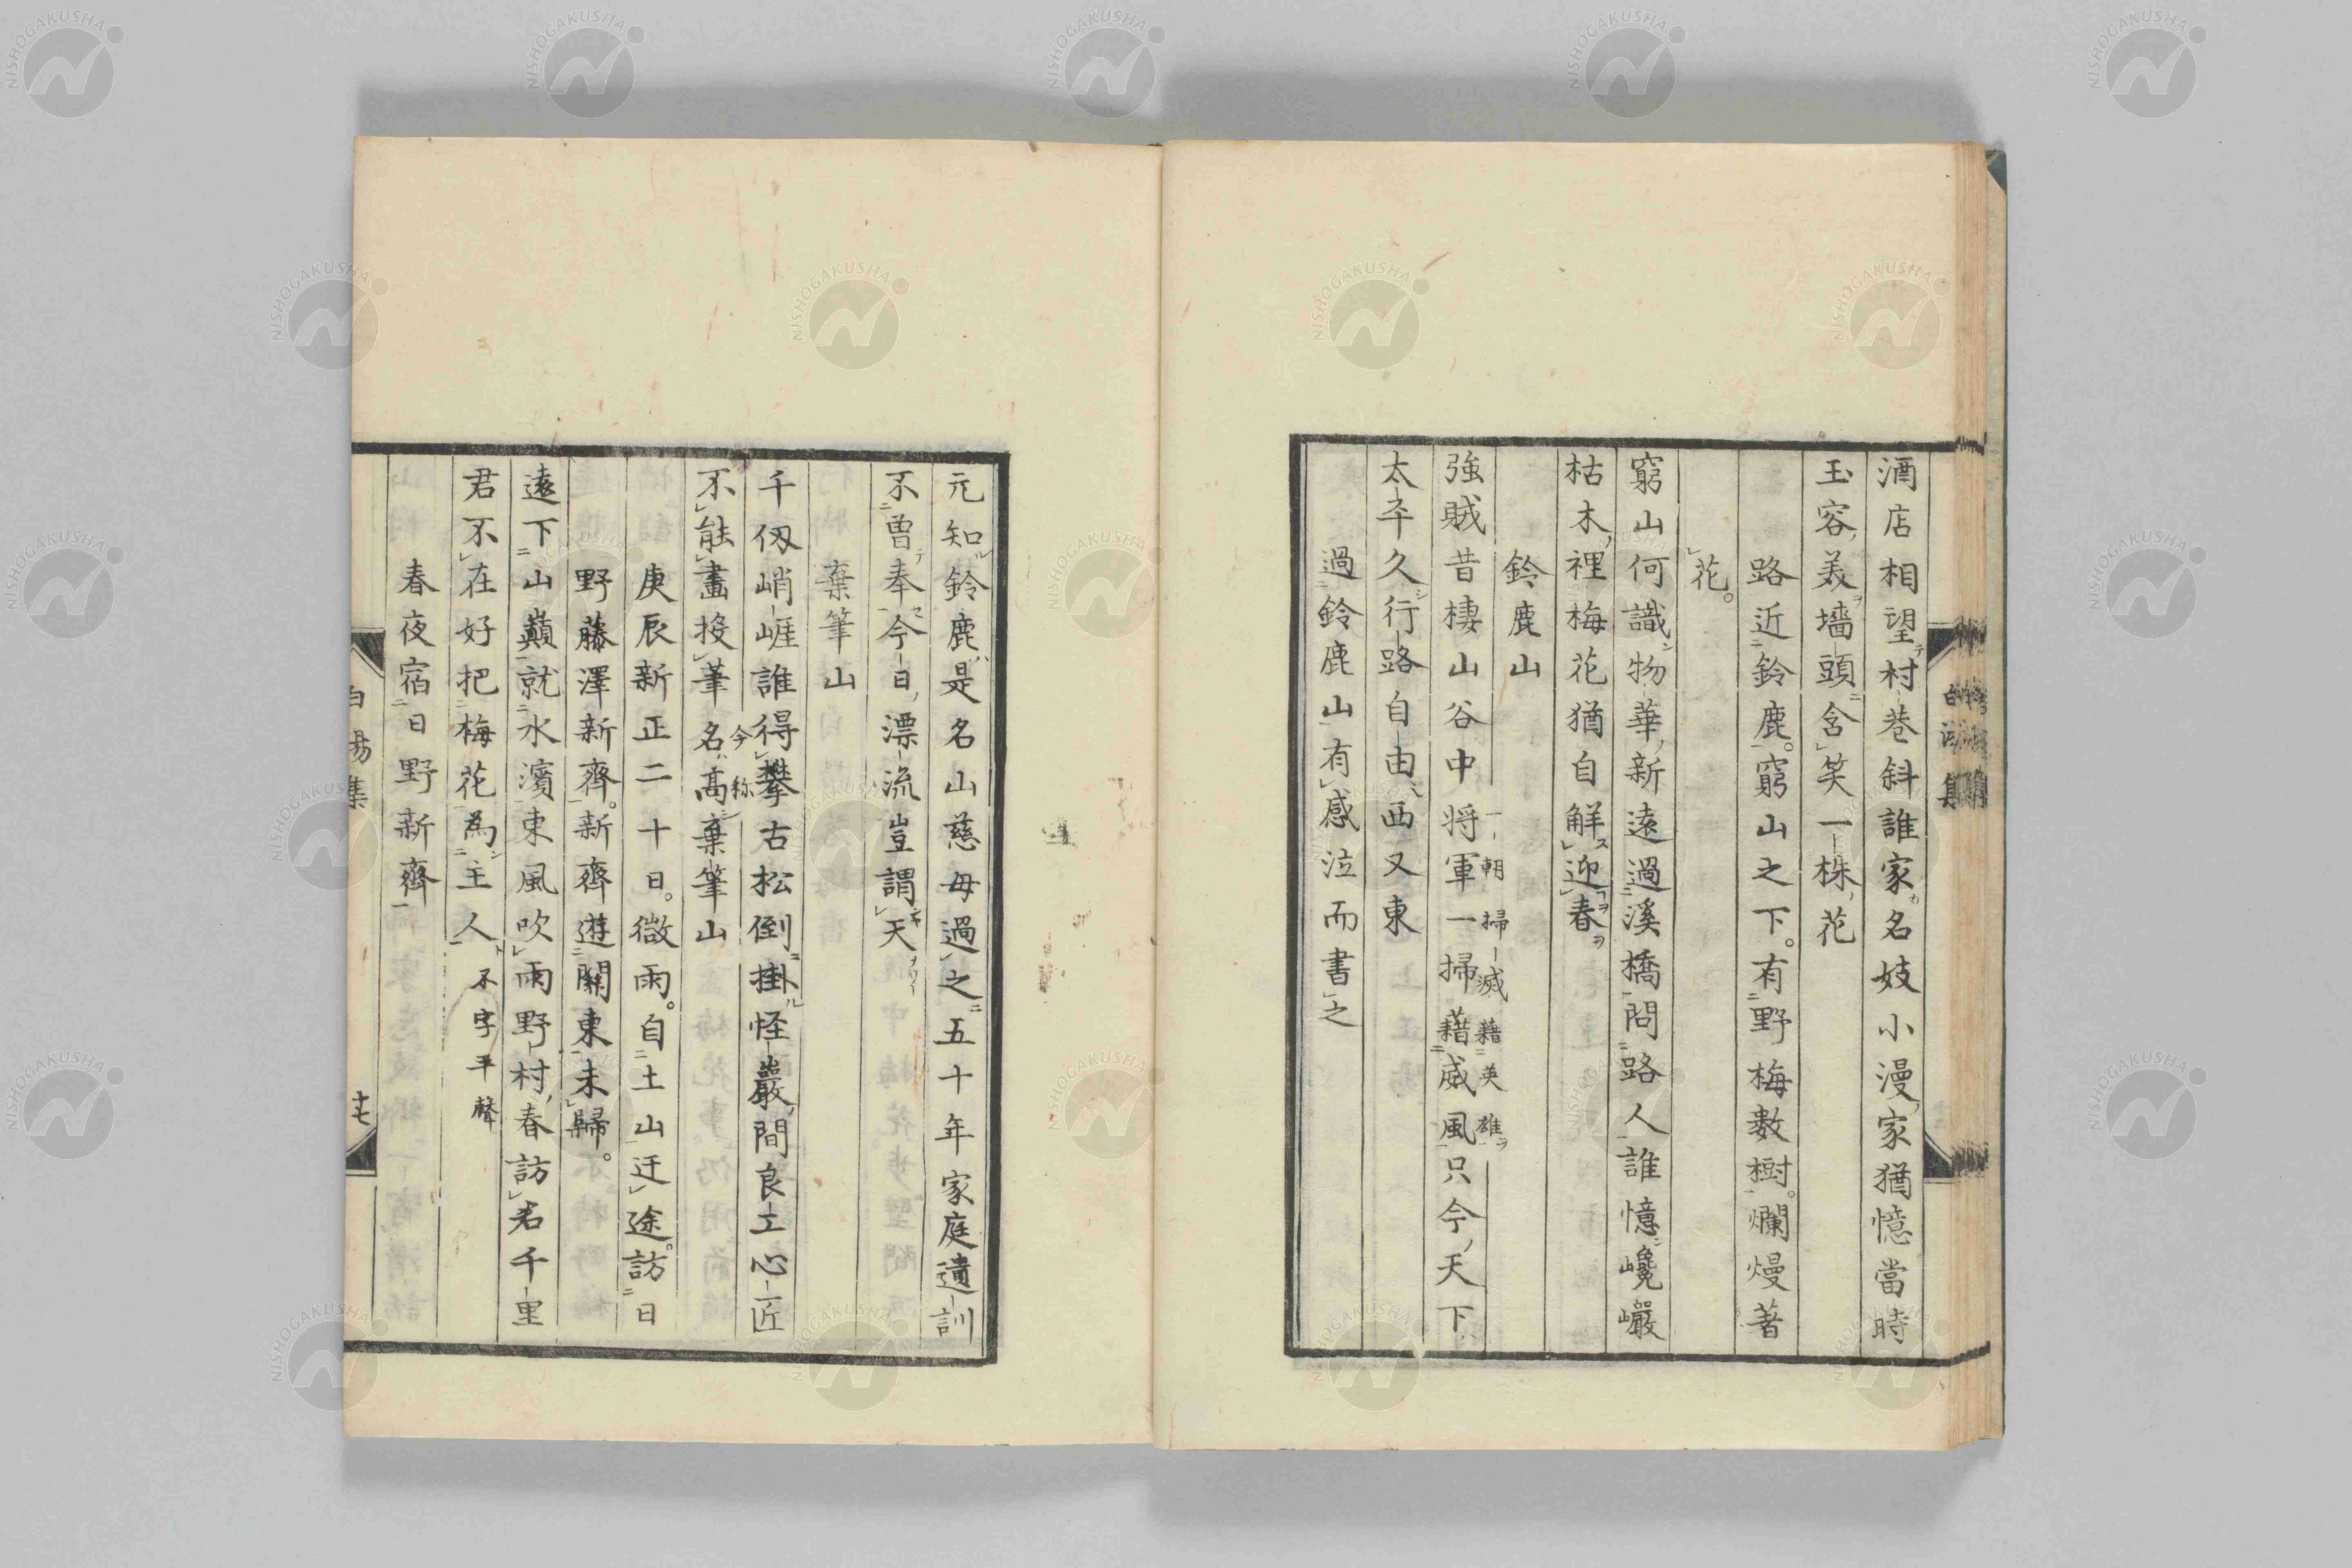 酒店相望村巷斜誰家名妓小漫家猶憶當時
玉容美墻頭含笑一株花
路近鈴鹿。窮山之下。有野梅數樹。爛熳著
花。
窮山何識物華新遠過溪橋問路人誰憶巉巖
枯木裡梅花猶自解迎春
鈴鹿山
一朝掃滅藉英雄
強賊昔棲山谷中将軍一掃藉威風只今天下
太平久行路自由西又東
過鈴鹿山有感泣而書之
元知鈴鹿是名山慈母過之五十年家庭遺訓
不曽奉今日漂流豈謂天
棄筆山
千仭峭崕誰得攀古松倒掛怪巖間良工心匠
今称
不能畫投筆名高棄筆山
庚辰新正二十日。微雨。自土山迂途。訪日
野藤澤新齊。新齊遊關東未歸。
遠下山巔就水濱東風吹雨野村春訪君千里
君不在好把梅花為主人 不字平聲
春夜宿日野新齊